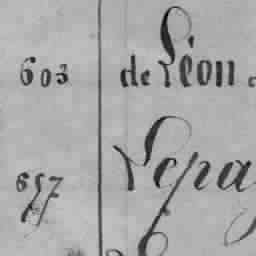 603 de Léon
657 Lepa